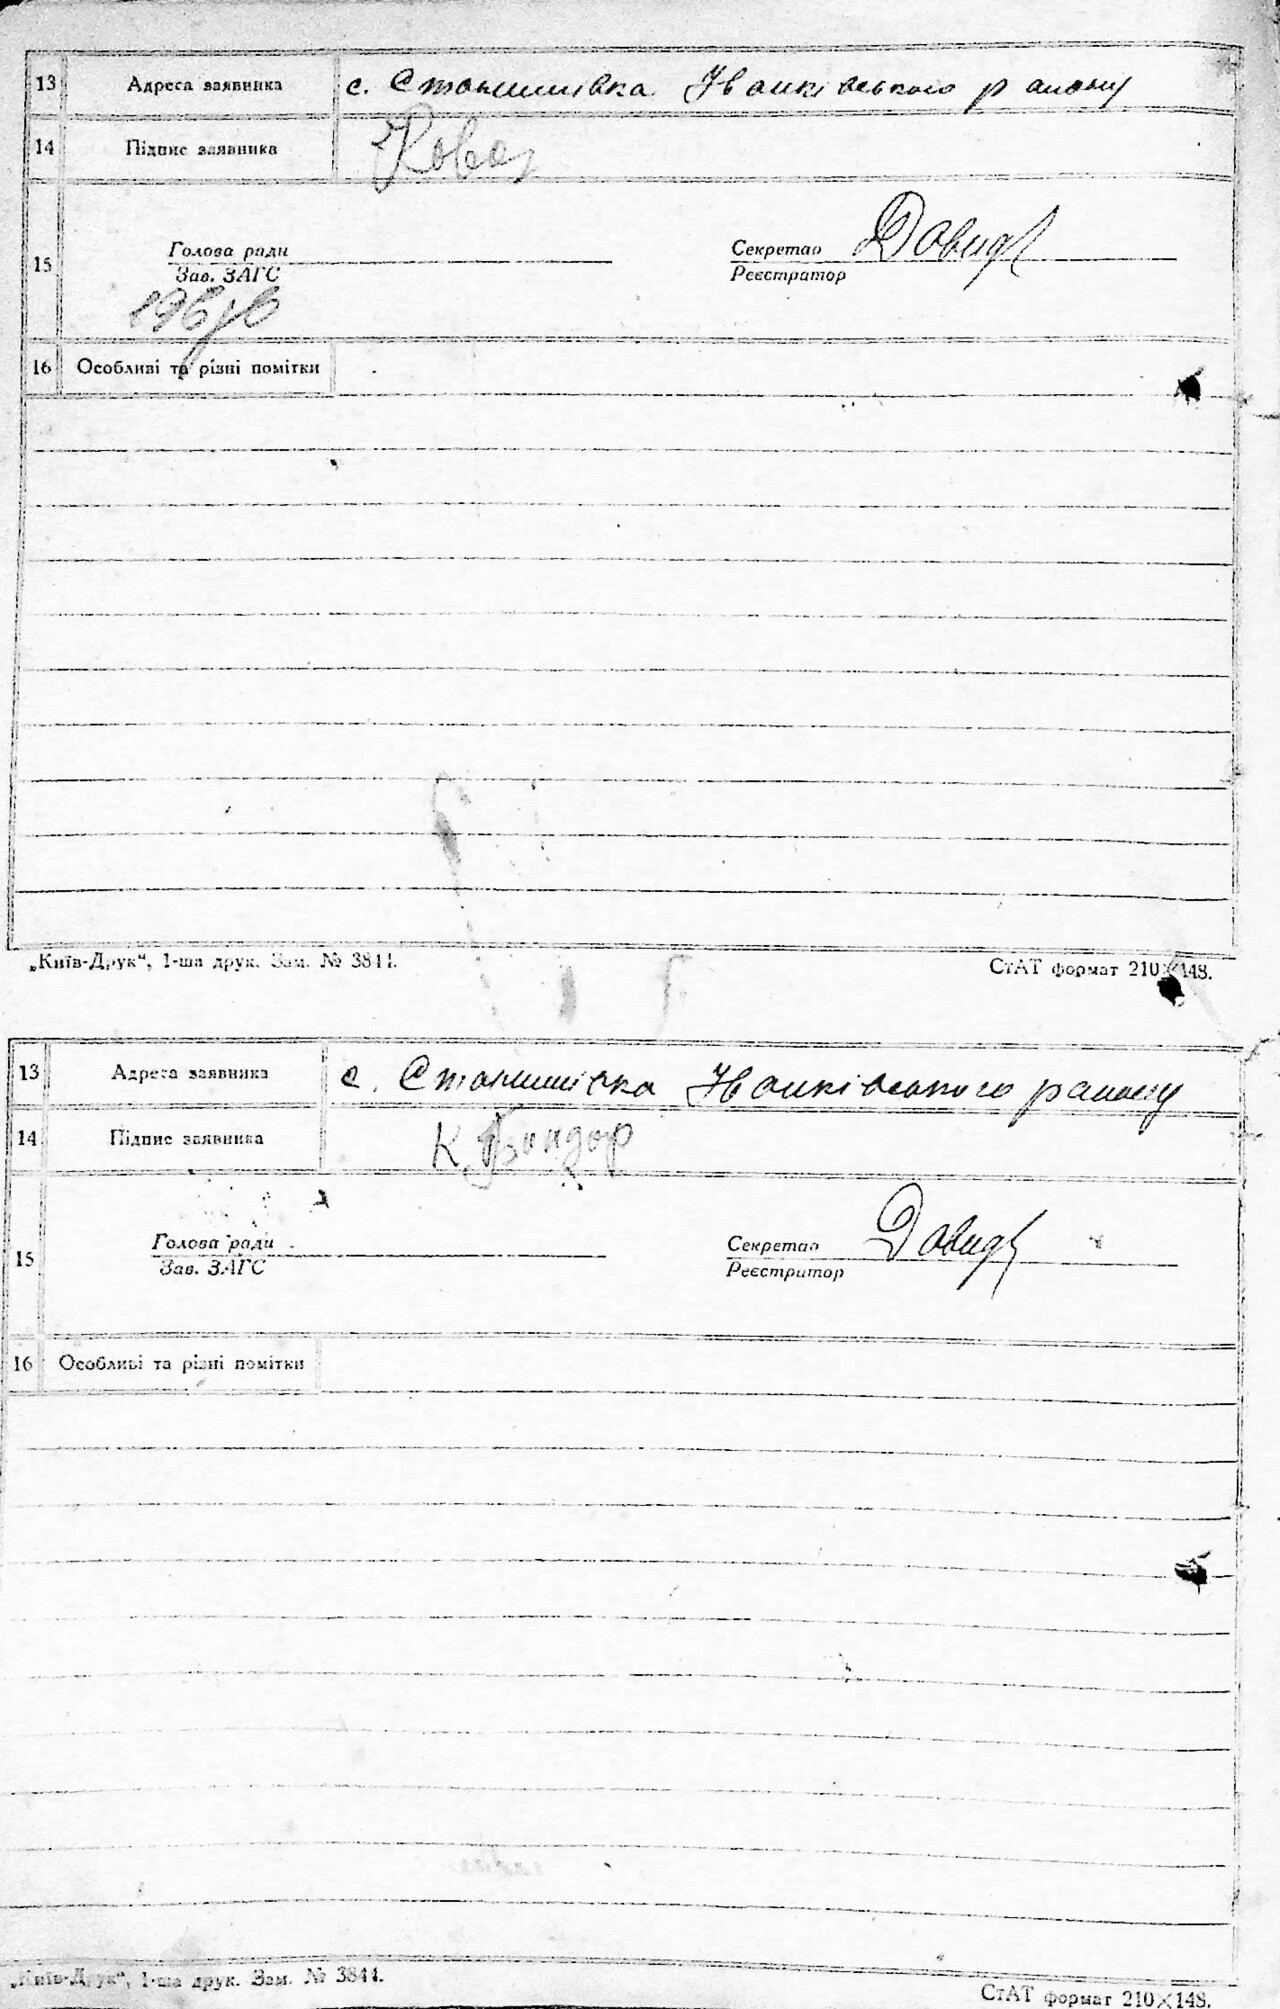 13 Адреса заявника с. Станишівка Іванківського району
14 Підпис заявника
15 Голова ради Секретар Давид
Зав. ЗАГС Реєстратор
16 Особливі та різні помітки
„Київ-Друк“, 1-ша друк. Зам. № 3844. СтАТ формат 210×148.
13 Адреса заявника с. Станишівка Іванківського району
14 Підпис заявника К. Бондор
15 Голова ради Секретар Давид
Зав. ЗАГС Реєстратор
16 Особливі та різні помітки
„Київ-Друк“, 1-ша друк. Зам. № 3844. СтАТ формат 210×148.